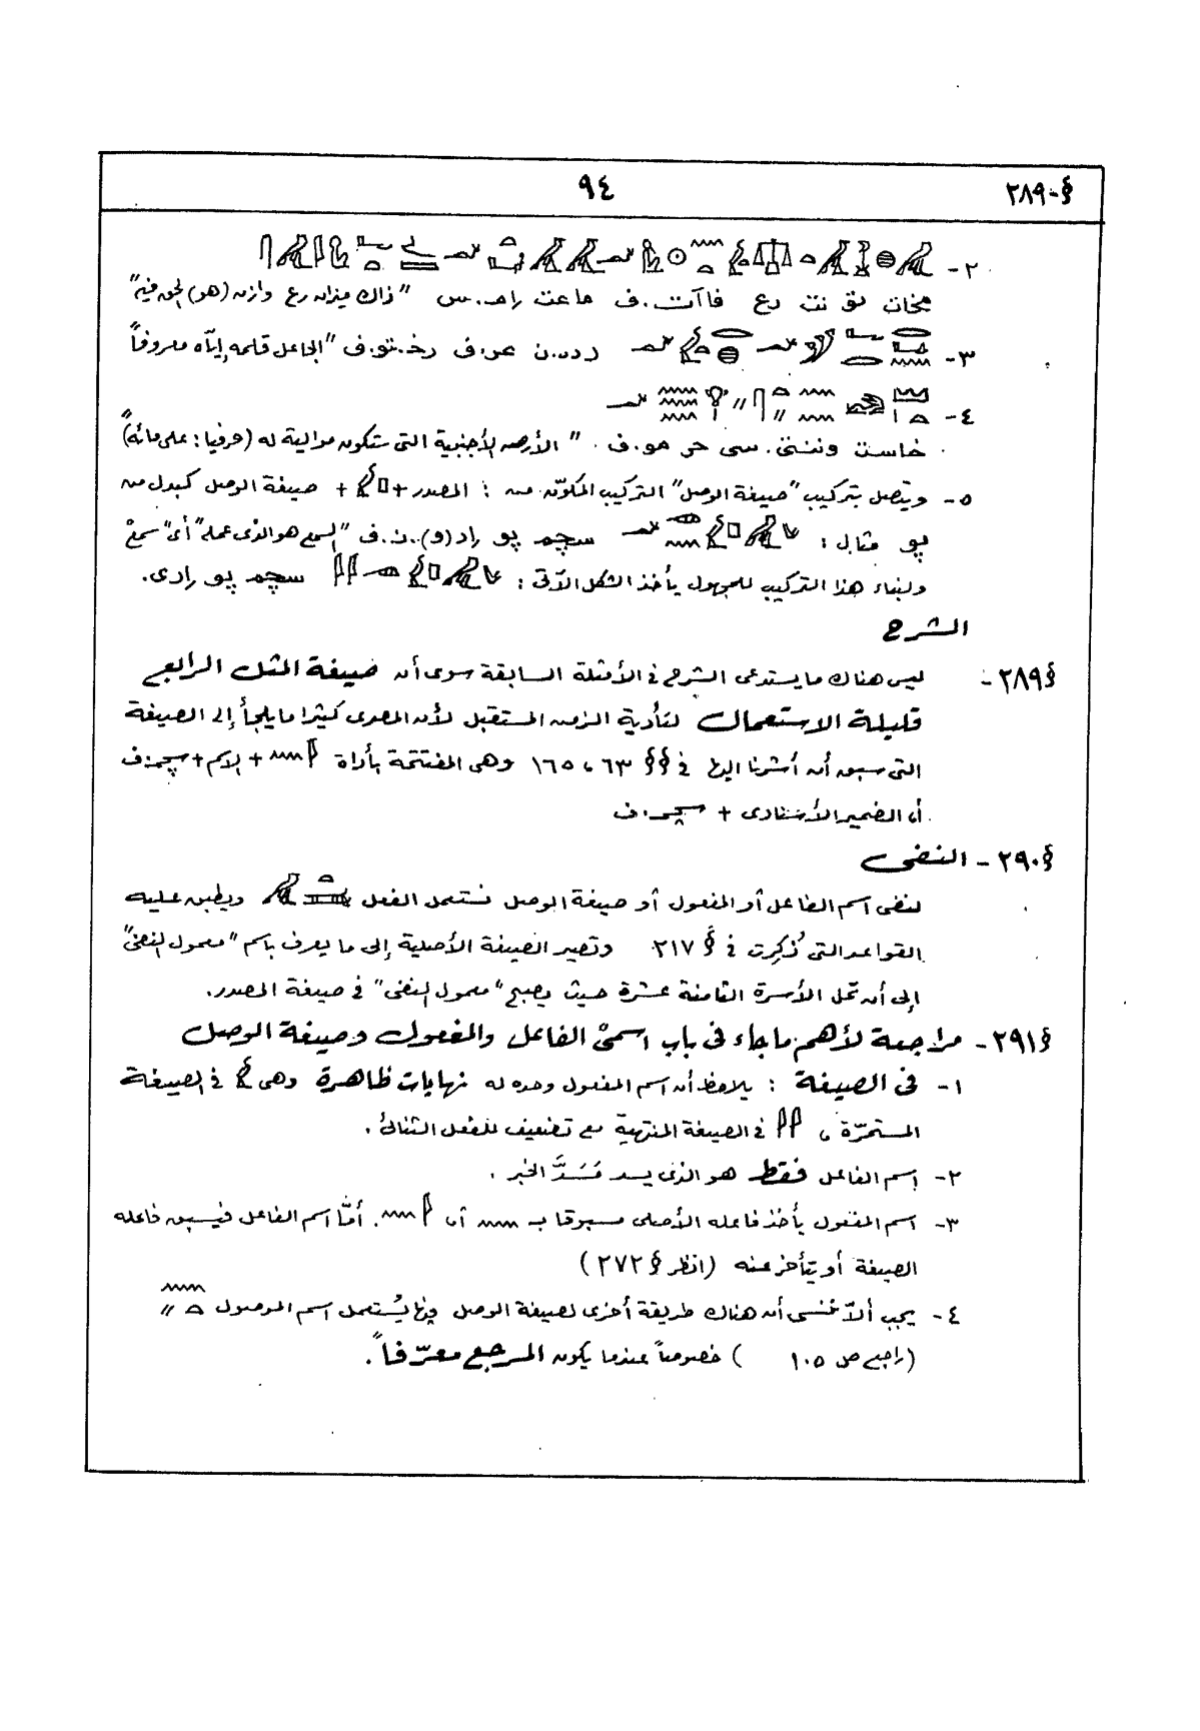 §-٢٨٩
٩٤
٢-
مخات نت رع فاآت.ف ماعت "ذاك ميزان رع وازن (هو) الحق فيه"
٣- ردى.ن عو.ف رخ.تو.ف "الجاعل قلمه إياه معروفاً"
٤-
خاست وننتى.سى حر مو.ف. "الأرض الأجنبية التى ستكون موالية له (حرفيا: على مائه)"
٥- ويتصل بتركيب "صيغة الوصل" التركيب المكوّن من : المصدر + + صيغة الوصل كبدل من
پو مثال : سچم پو راد(و).ن.ف "السمع هو الذى عمله" أى "سمع"
ولبناء هذا التركيب للمجهول يأخذ الشكل الآتى : سچم پو رادى.
الشرح
§٢٨٩- ليس هناك ما يستدعى الشرح فى الأمثلة السابقة سوى أن صيغة المثل الرابع
قليلة الاستعمال لتأدية الزمن المستقبل لأن المصرى كثيرا ما يلجأ إلى الصيغة
التى سبق أن أشرنا اليها فى §§ ٦٣، ١٦٥ وهى المفتتحة بأداة + الاسم + سچم.ف
أى الضمير الأسنادى + سچم.ف
§٢٩٠- النفى
لنفى اسم الفاعل أو المفعول أو صيغة الوصل نستعمل الفعل ويطبق عليه
القواعد التى ذُكِرت فى § ٢١٧ وتصير الصيغة الأصلية إلى ما يعرف باسم "معمول النفى"
إلى أن تحل الأسرة الثامنة عشرة حيث يصبح "معمول النفى" فى صيغة المصدر.
§٢٩١- مراجعة لأهم ما جاء فى باب اسمىْ الفاعل والمفعول وصيغة الوصل
١- فى الصيغة : يلاحظ أن اسم المفعول وحده له نهايات ظاهرة وهى فى الصيغة
المستمرّة، فى الصيغة المنتهية مع تضعيف للفعل الثنائى.
٢- إسم الفاعل فقط هو الذى يسد مَسَدَّ الخبر.
٣- اسم المفعول يأخذ فاعله الأصلى مسبوقا بـ أى . أمّا اسم الفاعل فيسبق فاعله
الصيغة أو يتأخر عنه (انظر § ٢٧٢)
٤- يجب ألاّ ننسى أن هناك طريقة أخرى لصيغة الوصل وفيها يُستعمل اسم الموصول
(راجع ص ١٠٥ ) خصوصاً عندما يكون المرجع معرّفاً.